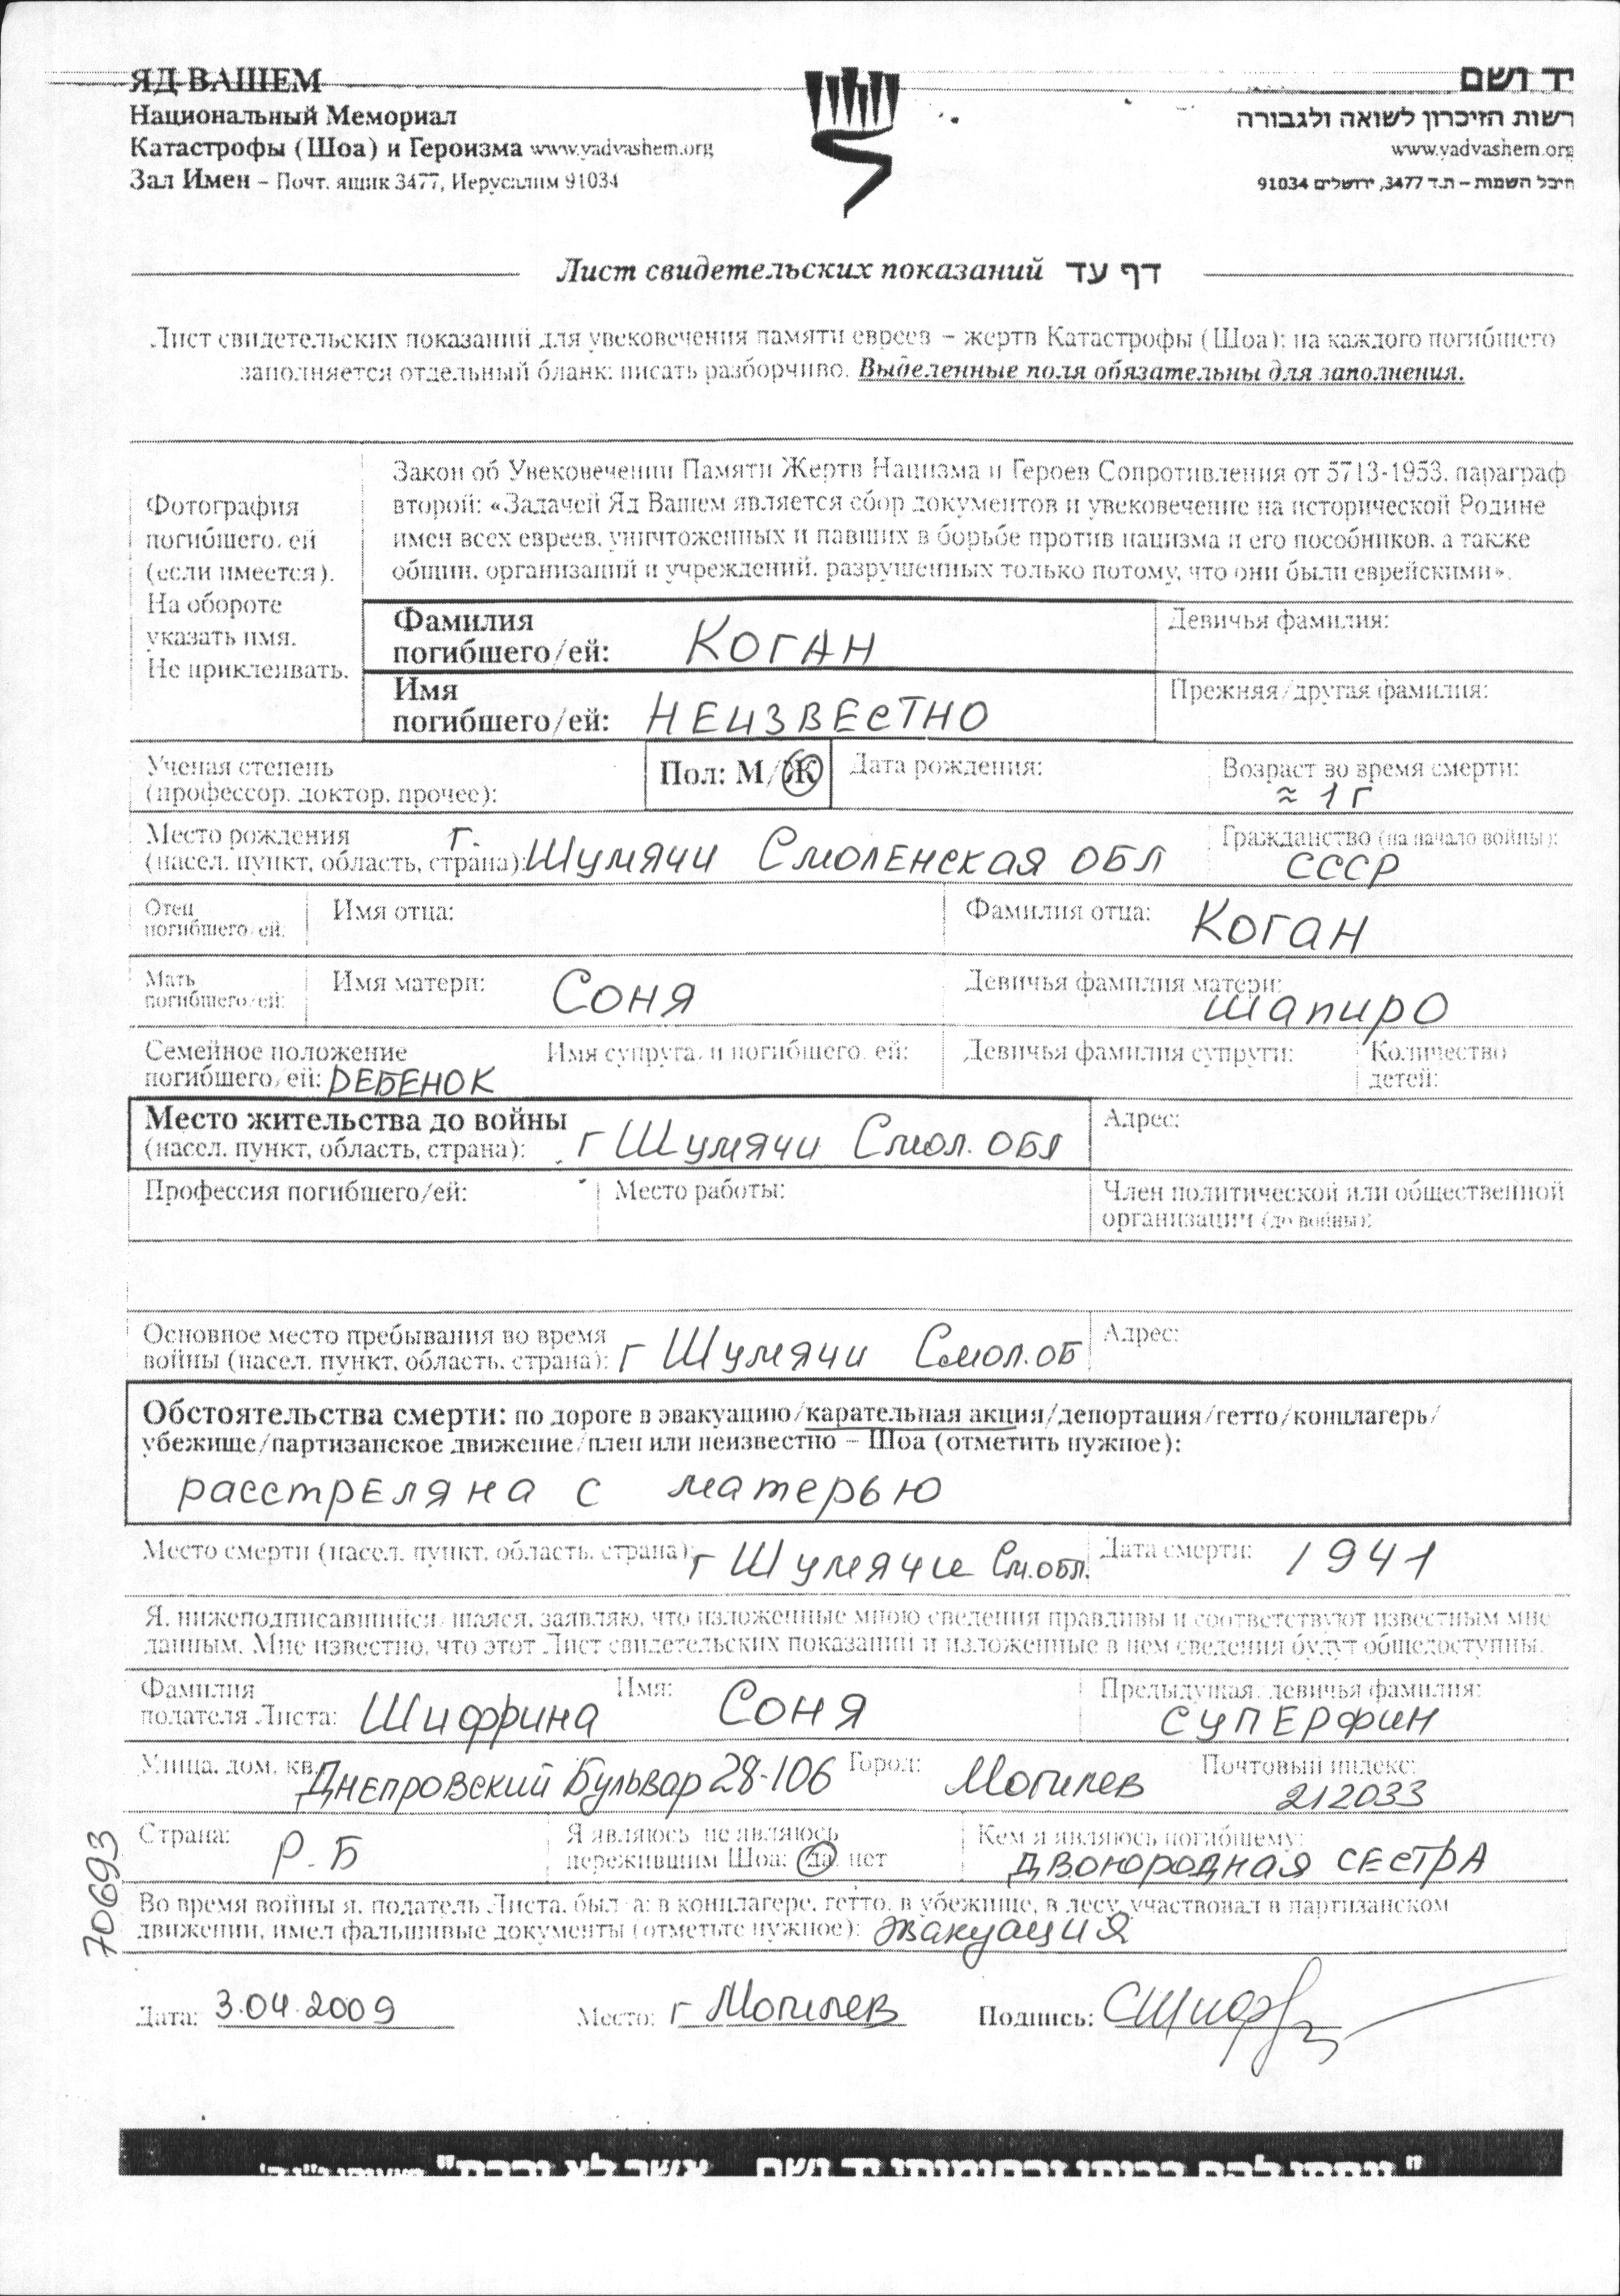 ЯД ВАШЕМ
Национальный Мемориал
Катастрофы (Шоа) и Героизма www.yadvashem.org
Зал Имен – Почт. ящик 3477, Иерусалим 91034
יד ושם
רשות הזיכרון לשואה ולגבורה
www.yadvashem.org
היכל השמות – ת.ד 3477, ירושלים 91034
Лист свидетельских показаний דף עד
Лист свидетельских показаний для увековечения памяти евреев – жертв Катастрофы (Шоа); на каждого погибшего
заполняется отдельный бланк; писать разборчиво. Выделенные поля обязательны для заполнения.
Фотография
погибшего/ей
(если имеется).
На обороте
указать имя.
Не приклеивать.
Закон об Увековечении Памяти Жертв Нацизма и Героев Сопротивления от 5713-1953, параграф
второй: «Задачей Яд Вашем является сбор документов и увековечение на исторической Родине
имен всех евреев, уничтоженных и павших в борьбе против нацизма и его пособников, а также
общин, организаций и учреждений, разрушенных только потому, что они были еврейскими».
Фамилия
погибшего/ей: КОГАН
Девичья фамилия:
Имя
погибшего/ей: НЕИЗВЕСТНО
Прежняя/другая фамилия:
Ученая степень
(профессор, доктор, прочее):
Пол: М/Ж
Дата рождения:
Возраст во время смерти:
≈ 1 г
Место рождения
(насел. пункт, область, страна): г. Шумячи Смоленская обл
Гражданство (на начало войны):
СССР
Отец
погибшего/ей:
Имя отца:
Фамилия отца: Коган
Мать
погибшего/ей:
Имя матери: Соня
Девичья фамилия матери:
Шапиро
Семейное положение
погибшего/ей: РЕБЕНОК
Имя супруга/и погибшего/ей:
Девичья фамилия супруги:
Количество
детей:
Место жительства до войны
(насел. пункт, область, страна): г Шумячи Смол. обл
Адрес:
Профессия погибшего/ей:
Место работы:
Член политической или общественной
организации (до войны):
Основное место пребывания во время
войны (насел. пункт, область, страна): г Шумячи Смол. об
Адрес:
Обстоятельства смерти: по дороге в эвакуацию/карательная акция/депортация/гетто/концлагерь/
убежище/партизанское движение/плен или неизвестно – Шоа (отметить нужное):
расстреляна с матерью
Место смерти (насел. пункт, область, страна): г Шумячи См.обл.
Дата смерти: 1941
Я, нижеподписавшийся/шаяся, заявляю, что изложенные мною сведения правдивы и соответствуют известным мне
данным. Мне известно, что этот Лист свидетельских показаний и изложенные в нем сведения будут общедоступны.
Фамилия
подателя Листа: Шифрина
Имя: Соня
Предыдущая/девичья фамилия:
СУПЕРФИН
Улица, дом, кв. Днепровский Бульвар 28-106
Город: Могилев
Почтовый индекс:
212033
Страна: Р.Б
Я являюсь/не являюсь
пережившим Шоа: да/нет
Кем я являюсь погибшему:
двоюродная сестра
Во время войны я, податель Листа, был/а: в концлагере, гетто, в убежище, в лесу, участвовал в партизанском
движении, имел фальшивые документы (отметьте нужное): эвакуация
70693
Дата: 3.04.2009
Место: г Могилев
Подпись:
"ונתתי להם בביתי ובחומותי יד ושם... אשר לא יכרת"